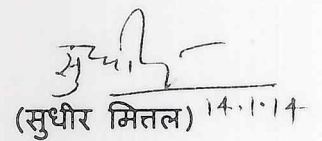 सुधीर
(सुधीर मित्तल) 14.1.14